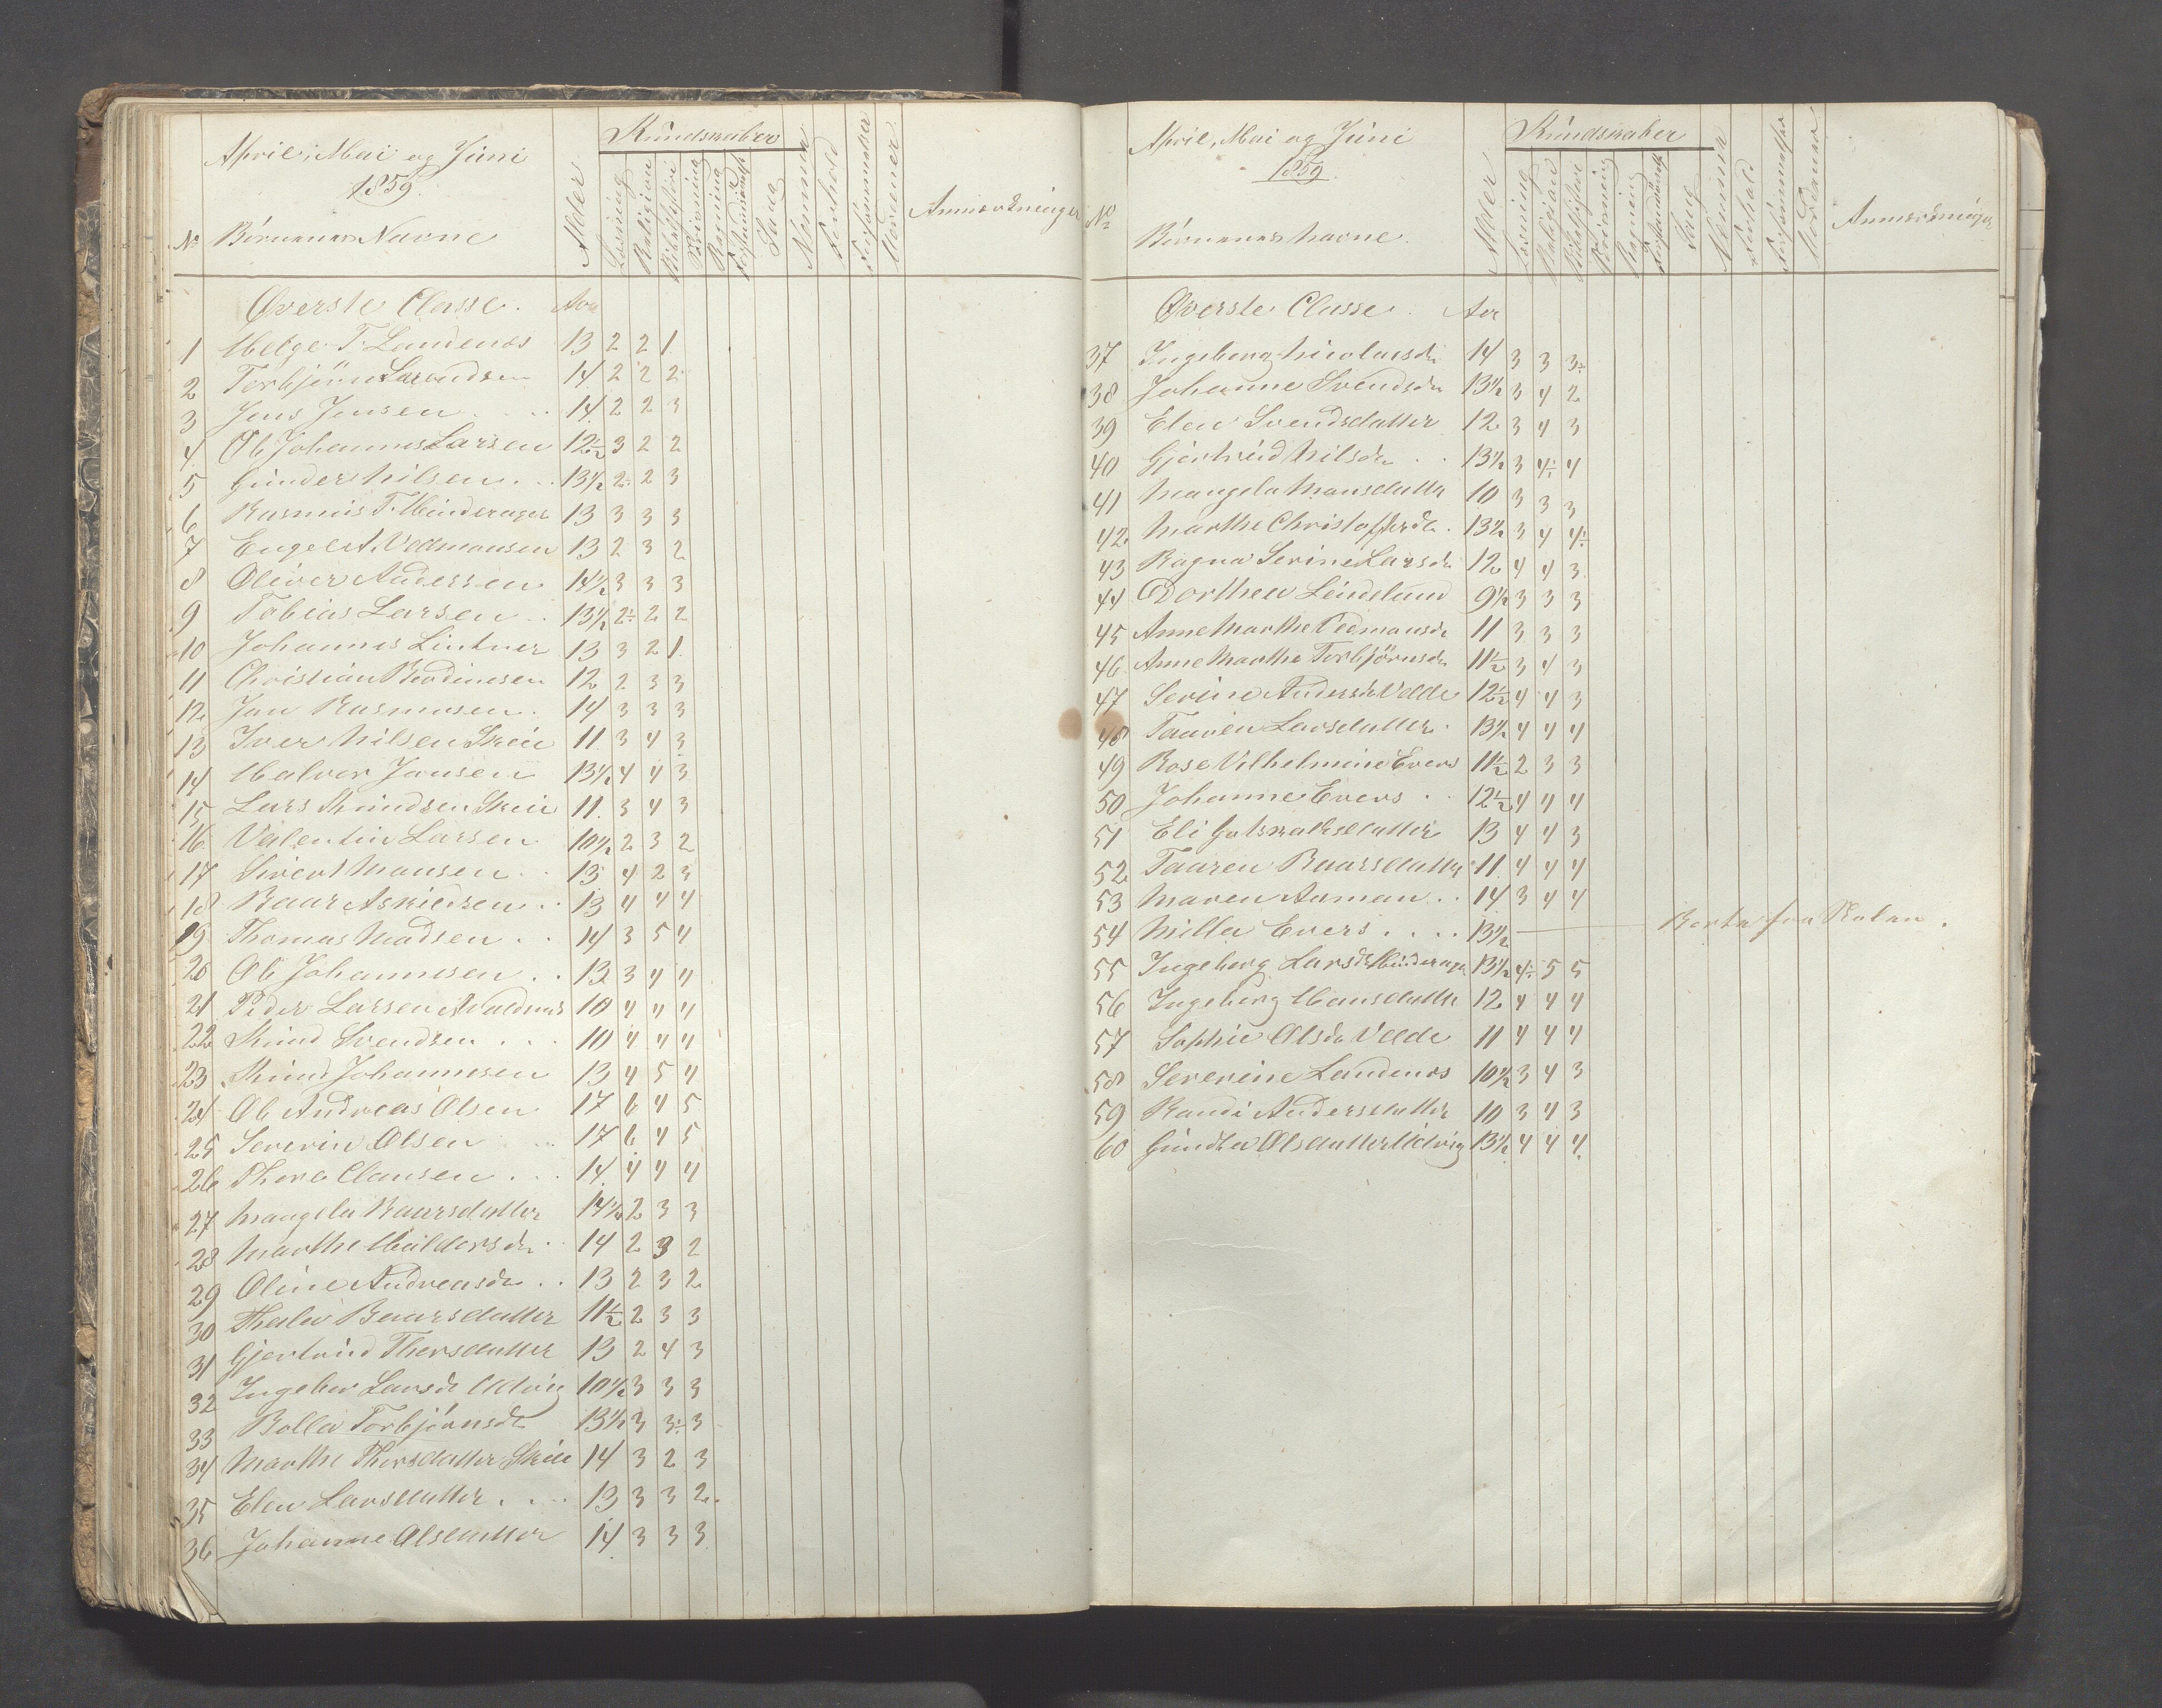 April, Mai og Juni
1859.
No Børnenes Navne Alder Kundskaber Læsning Religion Bibelhistorie Skrivning Regning Sang Nemme Forhold Forsømmelser Anmærkninger
Øverste Classe. Aar
1 Helge T. Landenes 13 2 2 1
2 Torbjørn 14 2 2 2
3 Jens Jensen 14 2 2 3
4 Ole Johannes Larsen 12½ 3 2 2
5 Gunder Nilsen 13½ 2÷ 2 3
6 Rasmus T. Hinderager 13 3 3 3
7 Engel A. Vedmansen 13 2 3 2
8 Oliver Andersen 14½ 3 3 3
9 Tobias Larsen 13½ 2÷ 2 2
10 Johannes Lintner 13 3 2 1
11 Christian Berdinesen 12 2 3 3
12 Jan Rasmusen 14 3 3 3
13 Iver Nilsen Skeie 11 3 4 3
14 Halvor Jansen 13½ 4 4 3
15 Lars Knudsen Skeie 11 3 4 3
16 Valentin Larsen 10½ 2 3 2
17 Sivert Mansen 13 4 2 3
18 Baar Askildsen 13 4 4 4
19 Thomas Madsen 14 3 5 4
20 Ole Johannesen 13 3 4 4
21 Peder Larsen Avaldsnes 10 4 4 4
22 Knud Svendsen 10 4 4 4
23 Knud Johannesen 13 4 5 4
24 Ole Andreas Olsen 17 6 4 5
25 Severin Olsen 17 6 4 5
26 Thore Clausen 14 4 4 4
27 Mangela Baarsdatter 14½ 2 3 3
28 Marthe 14 2 3 2
29 Oline Andreasdr 13 2 3 2
30 Thala Baarsdatter 11½ 2 3 3
31 Gjertrud Thorsdatter 13 2 4 3
32 Ingebor Larsdr Utvig 10½ 3 3 3
33 Bolla Torbjørnsdr 13½ 3 3÷ 3
34 Marthe Thorsdatter Skeie 14 3 2 3
35 Elen Larsdatter 13 3 3 2
36 Johanne Olsdatter 14 3 3 3
April, Mai og Juni
1859.
No Børnenes Navne. Alder Kundskaber Læsning Religion Bibelhistorie Skrivning Regning Sang Nemme Forhold Forsømmelser Anmærkninger
Øverste Classe. Aar
37 Ingeborg Nicolaisdr 14 3 3 3÷
38 Johanne Svendsdr 13½ 3 4 2
39 Elen Svendsdatter 12 3 4 3
40 Gjertrud Nilsdr 13½ 3 4÷ 4
41 Mangela Mansdatter 10 3 3 3
42 Marthe Christofferdr. 13½ 3 4 4÷
43 Ragna Serine Larsdr 12 4 4 3
44 Dorthea Lindelund 9½ 3 3 3
45 Anne Marthe Vedmansdr 11 3 3 3
46 Anne Marthe Torbjørnsdr 11½ 3 4 3
47 Serine Andersdr Velde 12½ 4 4 3
48 Taaren Larsdatter 13½ 4 4 4
49 Rose Vilhelmine Evers 11½ 2 3 3
50 Johanne Evers 12½ 4 4 4
51 Eli Gotskalksdatter 13 4 4 3
52 Taaren Baarsdatter 11 4 4 4
53 Maren Aaman 14 3 4 4
54 Milla Evers 13½ Borte fra Skolen.
55 Ingeborg Larsdr Hinderager 13½ 4÷ 5 5
56 Ingeborg Hansdatter 12 4 4 4
57 Sophie Olsdr Velde 11 4 4 4
58 Severine Landenes 10½ 3 4 3
59 Randi Andersdatter 10 3 4 3
60 Gundla Olsdatter Utvig 13½ 4 4 4